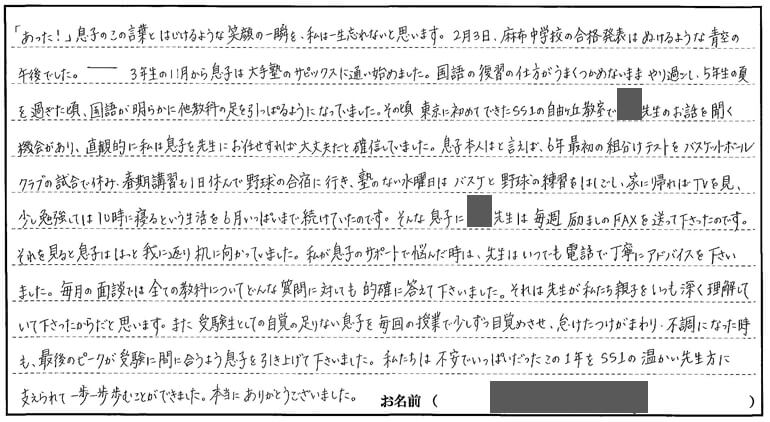 「あった！」息子のこの言葉とはじけるような笑顔の一瞬を、私は一生忘れないと思います。2月3日、麻布中学校の合格発表はぬけるような青空の
午後でした。── 3年生の11月から息子は大手塾のサピックスに通い始めました。国語の復習の仕方がうまくつかめないままやり過ごし、5年生の夏
を過ぎた頃、国語が明らかに他教科の足を引っぱるようになっていました。その頃 東京に初めてできたSS1の自由が丘教室で 先生のお話を聞く
機会があり、直観的に私は息子を先生にお任せすれば大丈夫だと確信していました。息子本人はと言えば、6年最初の組分けテストをバスケットボール
クラブの試合で休み、春期講習も1日休んで野球の合宿に行き、塾のない水曜日はバスケと野球の練習をはしごし、家に帰ればTVを見、
少し勉強しては10時に寝るという生活を6月いっぱいまで続けていたのです。そんな息子に 先生は毎週励ましのFAXを送って下さったのです。
それを見ると息子ははっと我に返り机に向かっていました。私が息子のサポートで悩んだ時は、先生はいつでも電話で丁寧にアドバイスを下さい
ました。毎月の面談では全ての教科についてどんな質問に対しても的確に答えて下さいました。それは先生が私たち親子をいつも深く理解して
いて下さったからだと思います。また受験生としての自覚の足りない息子を毎回の授業で少しずつ目覚めさせ、怠けたつけがまわり不調になった時
も、最後のピークが受験に間に合うよう息子を引き上げて下さいました。私たちは不安でいっぱいだったこの1年をSS1の温かい先生方に
支えられて一歩一歩歩むことができました。本当にありがとうございました。 お名前（ ）